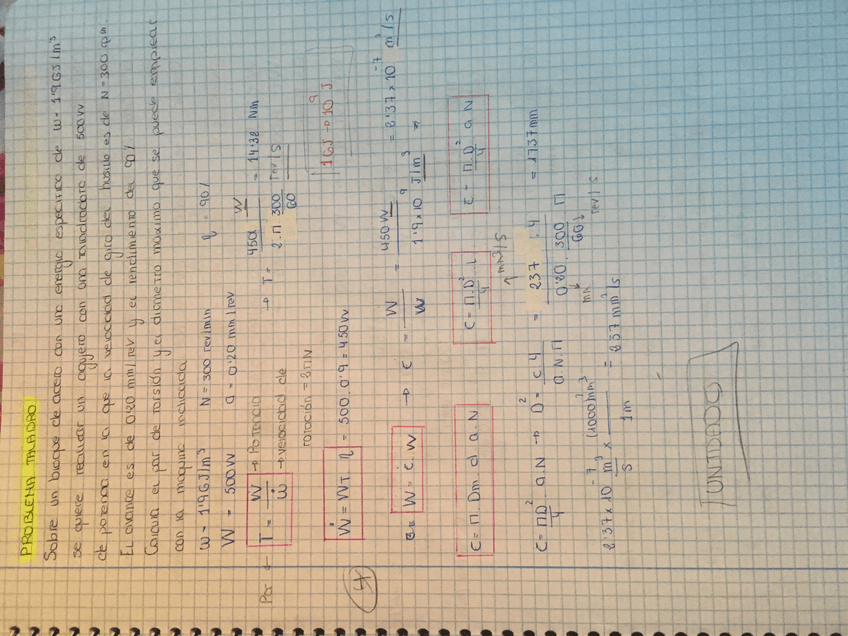 PROBLEMA TALADRO
Sobre un bloque de acero con una energía específica de w = 1'9 GJ/m³
se quiere realizar un agujero con una taladradora de 500W
de potencia en la que la velocidad de giro del husillo es de N = 300 rpm.
El avance es de 0'20 mm/rev y el rendimiento del 90%
Calcula el par de torsión y el diámetro máximo que se puede emplear
con la máquina indicada
w = 1'9 GJ/m³ N = 300 rev/min η = 90%
W = 500W a = 0'20 mm/rev
Par ← T = Ẇ/ω̇ → Potencia → velocidad de rotación = 2πN → T = 450 W / 2·π 300/60 rev/s = 14'32 Nm
Ẇ = WT · η = 500 · 0'9 = 450W 1GJ → 10⁹ J
Ẇ = ċ · W → c = W/w = 450W / 1'9x10⁹ J/m³ = 2'37x10⁻⁷ m³/s
C = π · Dm · d · a · N C = π·D²/4 · l C = π·D²/4 a·N
C = πD²/4 a·N → D² = c·4/a·N·π = 237 · 4 / 0'20 · 300/60 π = 1737mm
mm³/s
mm
rev/s
2'37x10⁻⁷ m³/s x (1000)³mm³/1m = 237 mm³/s
UNIDADES